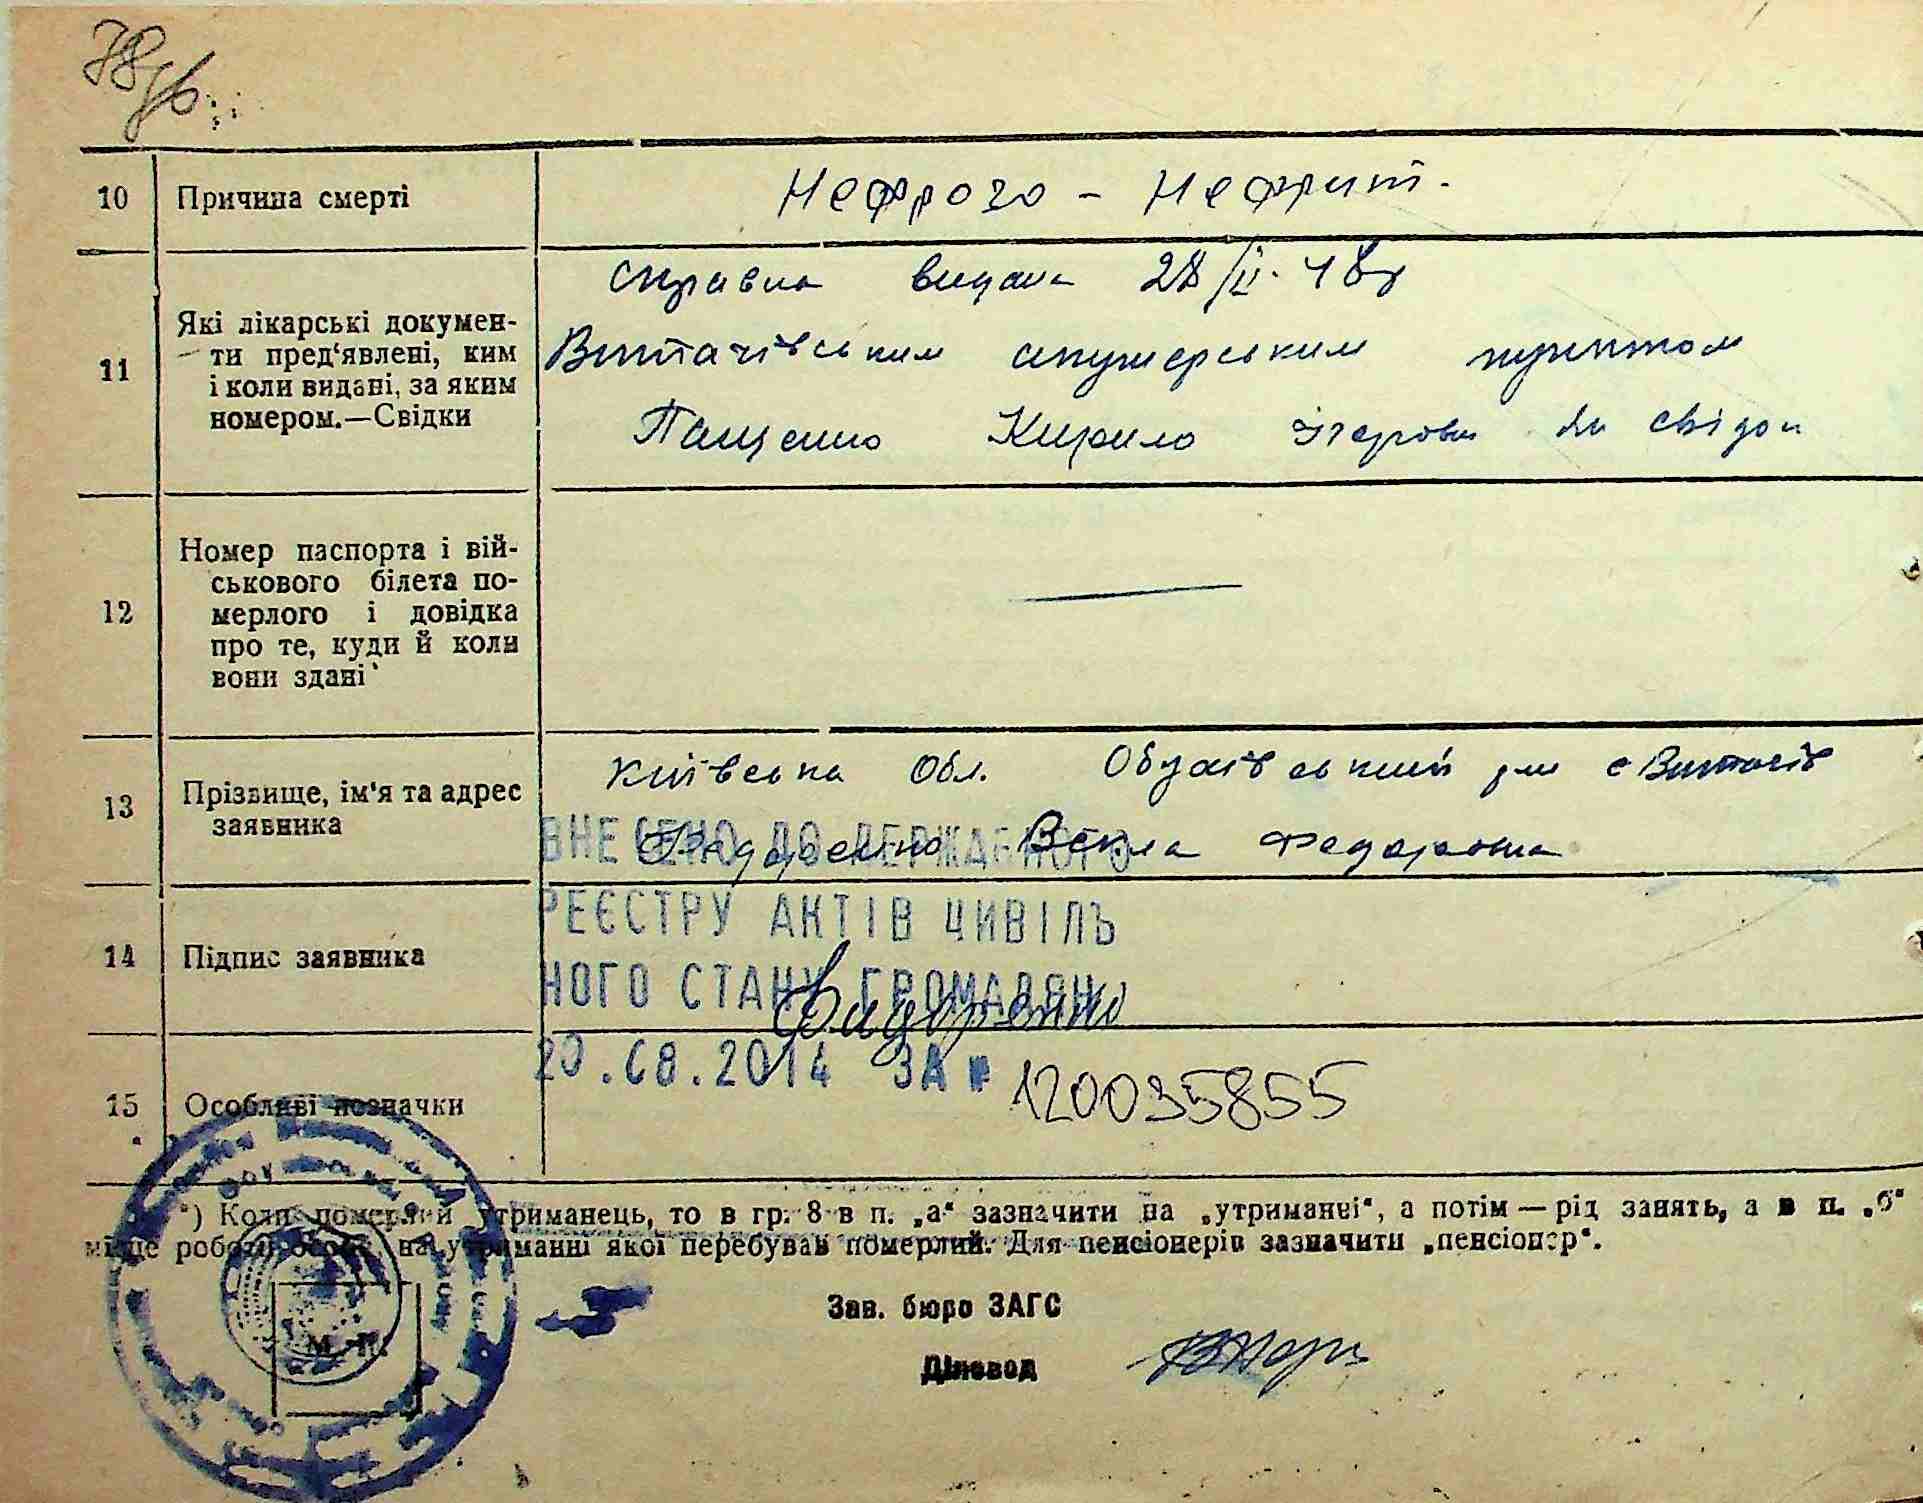 78
10 Причина смерті
Нефрозо - Нефрит.
11 Які лікарські докумен-
ти пред‘явлені, ким
і коли видані, за яким
номером.—Свідки
справка видана 28/II. 48р
Витачівським акушерським пунктом
Пащенко Кирило свідок
12 Номер паспорта і вій-
ськового білета по-
мерлого і довідка
про те, куди й коли
вони здані
13 Прізвище, ім‘я та адрес
заявника
Київська Обл. Обухівський с Витачів
Текла Федоровна
14 Підпис заявника
ВНЕСЕНО ДО ДЕРЖАВНОГО
РЕЄСТРУ АКТІВ ЦИВІЛЬ
НОГО СТАНУ ГРОМАДЯН
20.08.2014 ЗА № 1200035855
15 Особливі позначки
*) Коли померлий утриманець, то в гр. 8 в п. „а“ зазначити на „утриманні“, а потім — рід занять, а в п. „б“
місце роботи особи, на утриманні якої перебував померлий. Для пенсіонерів зазначити „пенсіонер“.
М. П.
Зав. бюро ЗАГС
Діловод